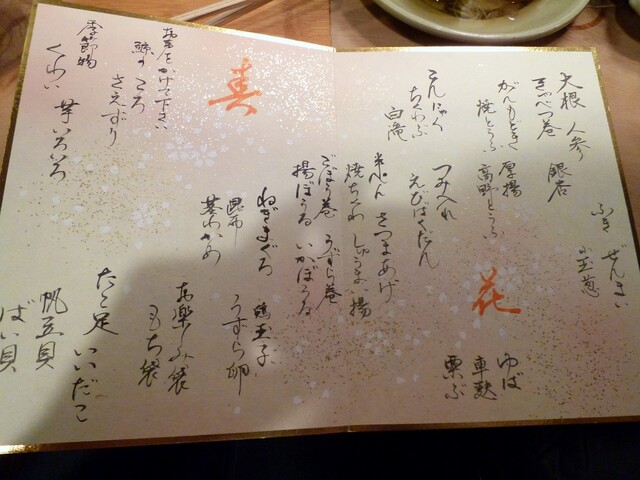 ふき ぜんまい
小玉葱
大根 人参 銀杏
きゃべつ巻
がんもどき 厚揚
焼とうふ 高野とうふ
こんにゃく
ちくわぶ
白滝
つみ入れ
えびばくだん
花
ゆば
車麩
粟ぶ
半ぺん さつまあげ
焼ちくわ しゅうまい揚
ごぼう巻 うずら巻
揚ぼうる いかぼうる
ねぎまぐろ
昆布
茎わかめ
鶏玉子
うずら卵
お楽しみ袋
もち袋
春
お声をかけて下さい
鯨の ころ
さえずり
季節物
くわい 芋いろいろ
たこ足 いいだこ
帆立貝
ばい貝